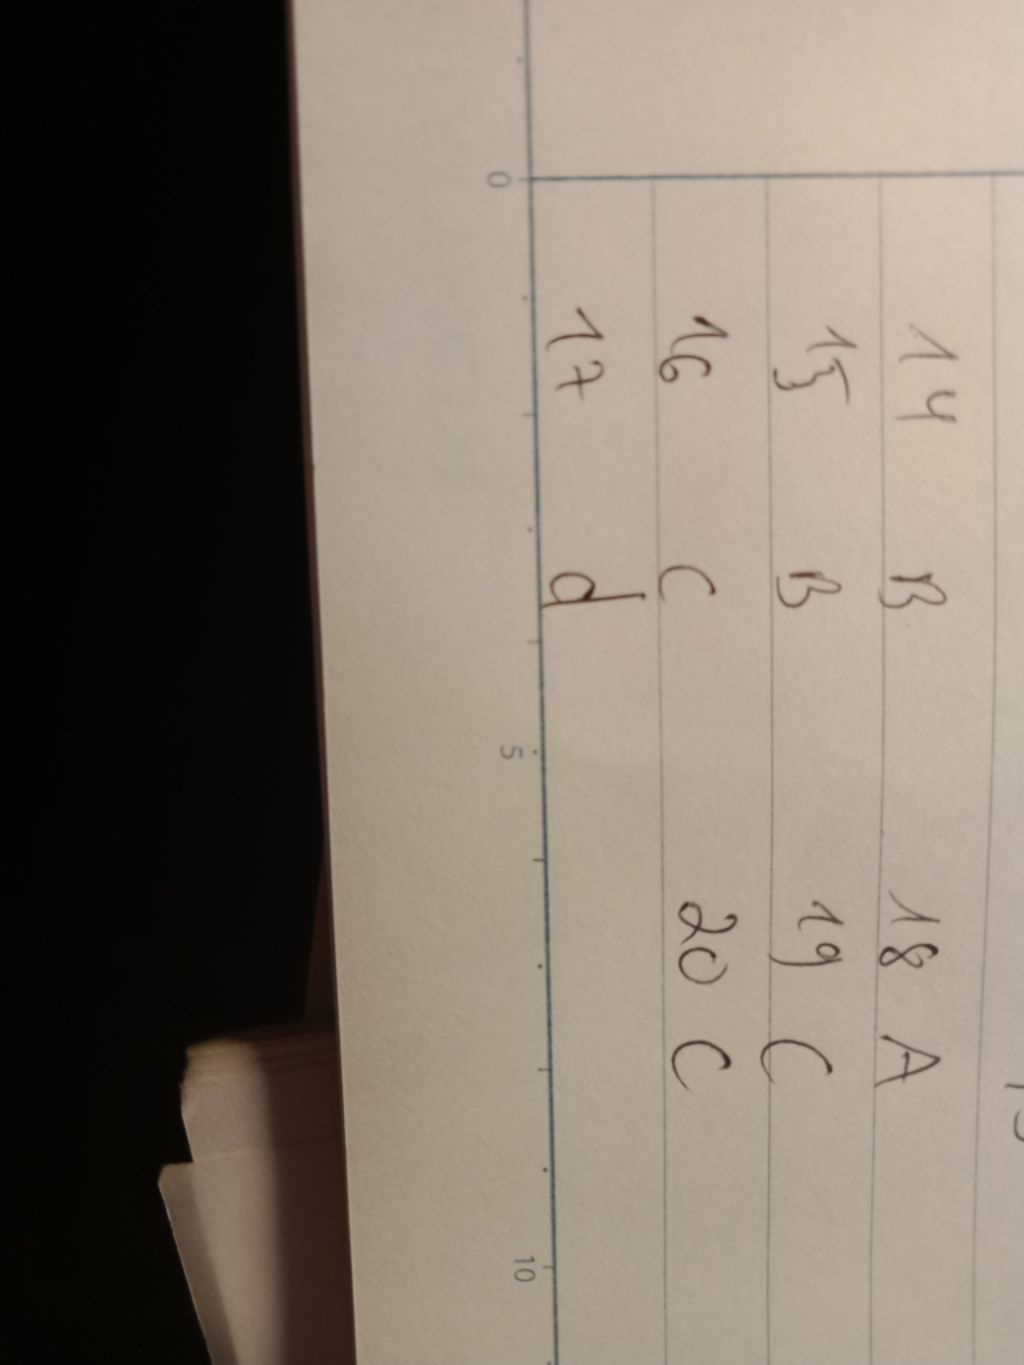 14 B 18 A
15 B 19 C
16 C 20 C
17 d
0 5 10